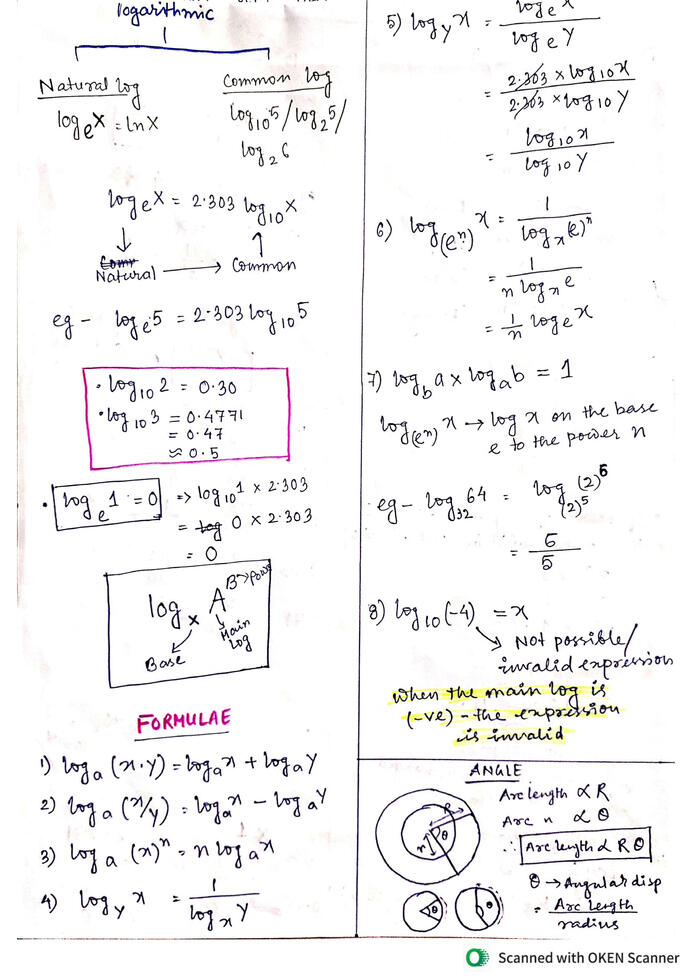 logarithmic
Natural log
logₑx = lnx
Common log
log₁₀5/log₂5/
log₂6
logₑx = 2.303 log₁₀x
Natural → Common
eg - logₑ5 = 2.303 log₁₀5
• log₁₀2 = 0.30
• log₁₀3 = 0.4771
= 0.47
≈ 0.5
• logₑ1 = 0 => log₁₀1 × 2.303
= 0 × 2.303
= 0
B → power
logₓ A
Base
Main
log
FORMULAE
1) logₐ (x.y) = logₐx + logₐy
2) logₐ (x/y) = logₐx - logₐy
3) logₐ (x)ⁿ = n logₐx
4) log_y x = 1/logₓy
5) log_y x = logₑx/logₑy
= 2.303 × log₁₀x/2.303 × log₁₀y
= log₁₀x/log₁₀y
6) log_(eⁿ) x = 1/logₓ(e)ⁿ
= 1/n logₓe
= 1/n logₑx
7) log_b a × logₐb = 1
log_(eⁿ) x → log x on the base
e to the power n
eg - log₃₂64 = log_(2)⁵ (2)⁶
= 6/5
8) log₁₀(-4) = x
→ Not possible/
invalid expression
when the main log is
(-ve) - the expression
is invalid
ANGLE
R
θ
r
Arc length ∝ R
Arc n ∝ θ
∴ Arc length ∝ R θ
θ → Angular disp
= Arc length/radius
θ
θ
Scanned with OKEN Scanner